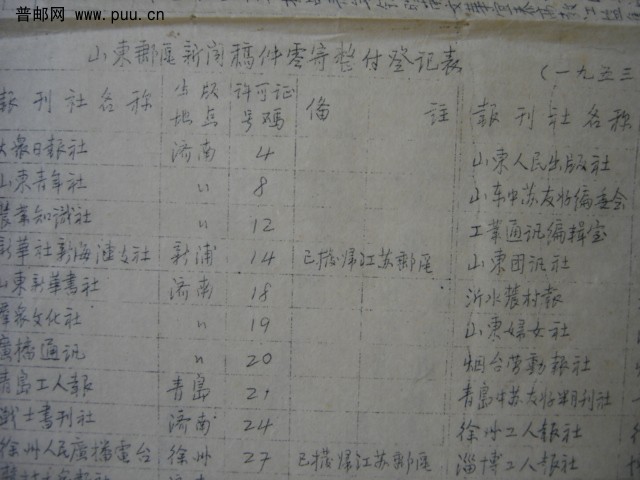 普邮网 www.puu.cn
山東郵區新闻稿件零寄整付登记表
(一九五三
報刊社名称 出版地点 许可证号码 備註 報刊社名称
大衆日報社 济南 4 山東人民出版社
山東青年社 〃 8 山东中苏友好编委会
農業知識社 〃 12 工業通讯编輯室
新華社新海連支社 新浦 14 已撥归江苏郵區 山東团讯社
山東新華書社 济南 18 沂水農村報
羣衆文化社 〃 19 山東婦女社
廣播通讯 〃 20 烟台劳動報社
青島工人報 青島 21 青島中苏友好半月刊社
战士書刊社 济南 24 徐州工人報社
徐州人民廣播電台 徐州 27 已撥归江苏郵區 淄博工人報社